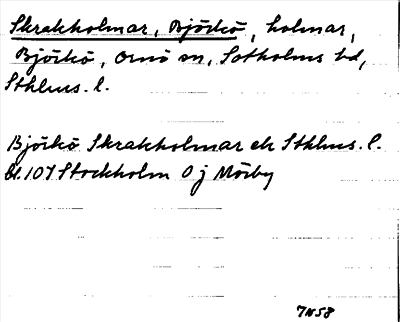 Skrakholmar, Björkö, holmar,
Björkö, Ornö sn, Sotholms hd,
Sthlms. l.
Björkö Skrakholmar ek Sthlms. l.
Bl. 107 Stockholm O j Mörby
7N58